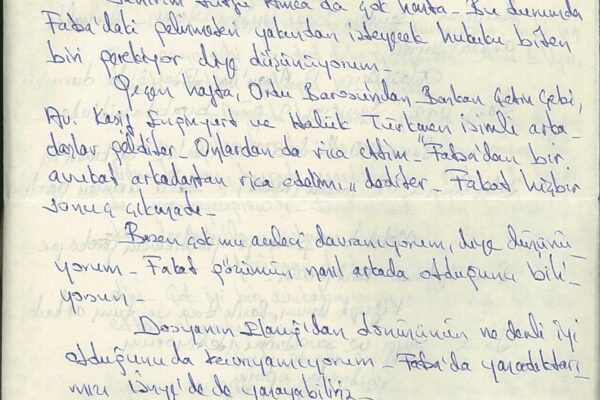 Sanırım Süreyya Amca da çok hasta_ Bu durumda
Fatsa'daki gelişmeleri yakından izleyecek hukuku bilen
biri gerekiyor diye düşünüyorum_
Geçen hafta, Ordu Barosundan_ Başkan Çetin Çebi,
Av. Kaşif ve Haluk Türkmen isimli arka-
daşlar geldiler_ Onlardan da rica ettim_ "Fatsa'dan bir
avukat arkadaştan rica edelim" dediler_ Fakat hiçbir
sonuç çıkmadı_
Bazen çok mu aceleci davranıyorum, diye düşünü-
yorum_ Fakat gözümün nasıl arkada olduğunu bili-
yorsun_
Dosyanın Elazığ'dan dönüşünün ne denli iyi
olduğunu da kavrayamıyorum_ Fatsa'da yaradıkları-
mızı de de yarayabiliriz_